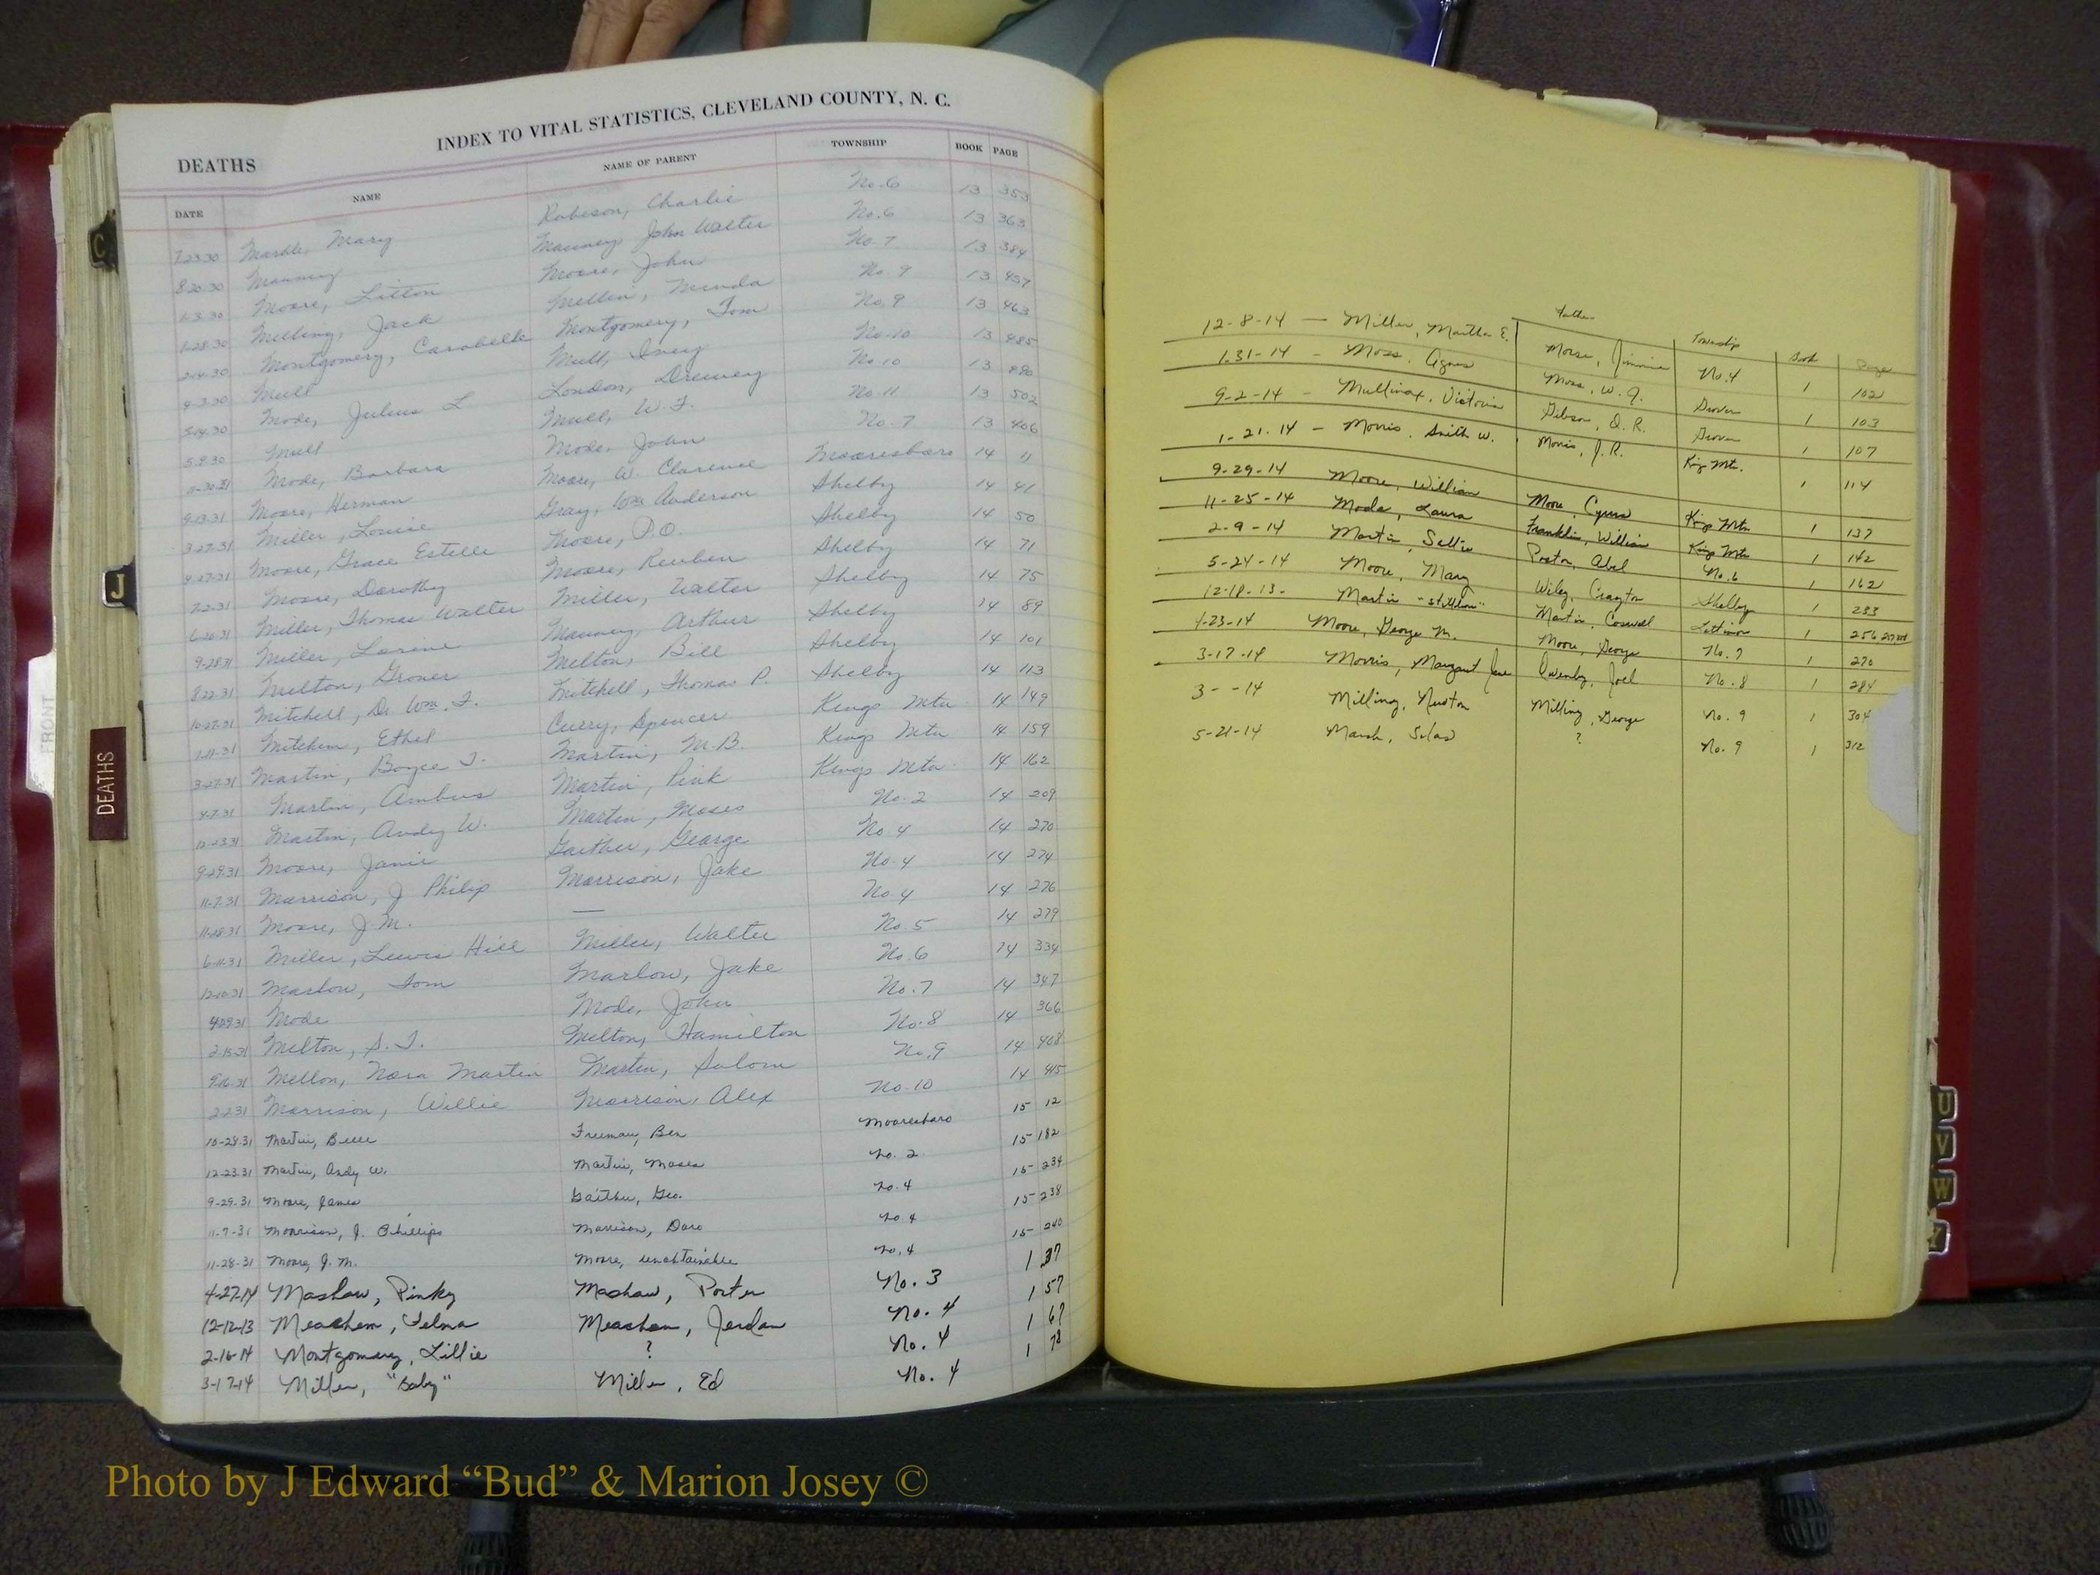 INDEX TO VITAL STATISTICS, CLEVELAND COUNTY, N. C.
DEATHS
DATE NAME NAME OF PARENT TOWNSHIP BOOK PAGE
7-23-30 Mary Robeson, Charlie No. 6 13 353
8-20-30 Mauney Mauney John Walter No. 6 13 363
Moore, Litton Moore, John No. 7 13 384
Melling, Jack No. 9 13 457
2-14-30 Montgomery, Carobelle Montgomery, Tom No. 9 13 463
4-3-30 Mull Mull, No. 10 13 485
5-14-30 Mode, Julius L London, No. 10 13
5-9-30 Mull Mull, W. F. No. 11 13 502
11-30-31 Mode, Barbara Mode, John No. 7 13 406
9-13-31 Moore, Herman Moore, W. Clarence Mooresboro 14 11
3-27-31 Miller, Louise Gray, Wm Anderson Shelby 14 41
4-27-31 Moore, Grace Estelle Moore, P. O. Shelby 14 50
7-2-31 Moore, Dorothy Moore, Reuben Shelby 14 71
6-20-31 Miller, Thomas Walter Miller, Walter Shelby 14 75
9-28-31 Miller, Lorine Mauney Arthur Shelby 14 89
8-22-31 Melton, Grover Melton, Bill Shelby 14 101
10-27-31 Mitchell, Dr. Wm. F. Mitchell, Thomas P. Shelby 14 113
Mitchem, Ethel Curry, Spencer Kings Mtn 14 149
3-27-31 Martin, Boyce T. Martin, M. B. Kings Mtn 14 159
4-7-31 Martin, Ambus Martin, Pink Kings Mtn 14 162
12-23-31 Martin, Andy W. Martin, Moses No. 2 14 209
9-29-31 Moore, Janie Gaither, George No 4 14 270
11-7-31 Morrison, J Philip Morrison, Jake No. 4 14 274
11-28-31 Moore, J. M. — No. 4 14 276
6-11-31 Miller, Lewis Hill Miller, Walter No. 5 14 279
12-10-31 Marlow, Tom Marlow, Jake No. 6 14 334
4-29-31 Mode Mode, John No. 7 14 347
2-15-31 Melton, S. T. Melton, Hamilton No. 8 14 366
9-16-31 Mellon, Nora Martin Martin, Salom No. 9 14 408
2-2-31 Morrison, Willie Morrison, Alex No. 10 14 415
10-28-31 Martin, Belle Freeman, Ben Mooresboro 15 12
12-23-31 Martin, Andy W. Martin, Moses No. 2 15 182
9-29-31 Moore, James Gaither, Geo. No. 4 15 234
11-7-31 Morrison, J. Phillips Morrison, No 4 15 238
11-28-31 Moore, J. M. Moore, unobtainable No. 4 15 240
4-27-14 Mashaw, Pinky Mashaw, Porter No. 3 1 37
12-12-13 Meachem, Telma Meachem, Jerdan No. 4 1 57
2-16-14 Montgomery, Lillie ? No. 4 1 67
3-17-14 Miller, "Baby" Miller, Ed No. 4 1 78
Father Township Book Page
12-8-14 — Miller, Martha E. Morse, Jimmie No. 4 1 102
1-31-14 - Moss, Agnes Moss, W. G. Grover 1 103
9-2-14 - Mullinax, Victoria Gibson, D. R. Grover 1 107
1-21-14 - Morris, Smith W. Morris, J. R. King Mtn. 1 114
9-29-14 Moore, William Moore, Cyrus King Mtn 1 137
11-25-14 Mode, Laura Franklin, William Kings Mtn 1 142
2-9-14 Martin, Sallie Poston, Abel No. 6 1 162
5-24-14 Moore, Mary Wiley, Crayton Shelby 1 233
12-18-13 - Martin "Stillborn" Martin, Coswell Lattimore 1 256
4-23-14 Moore, George M. Moore, George No. 7 1 270
3-17-14 Morris, Margaret Jane Owenby, Joel No. 8 1 284
3- -14 Milling, Newton Milling, George No. 9 1 304
5-21-14 Marsh, Silas ? No. 9 1 312
C
J
DEATHS
FRONT
U
V
W
Photo by J Edward “Bud” & Marion Josey ©